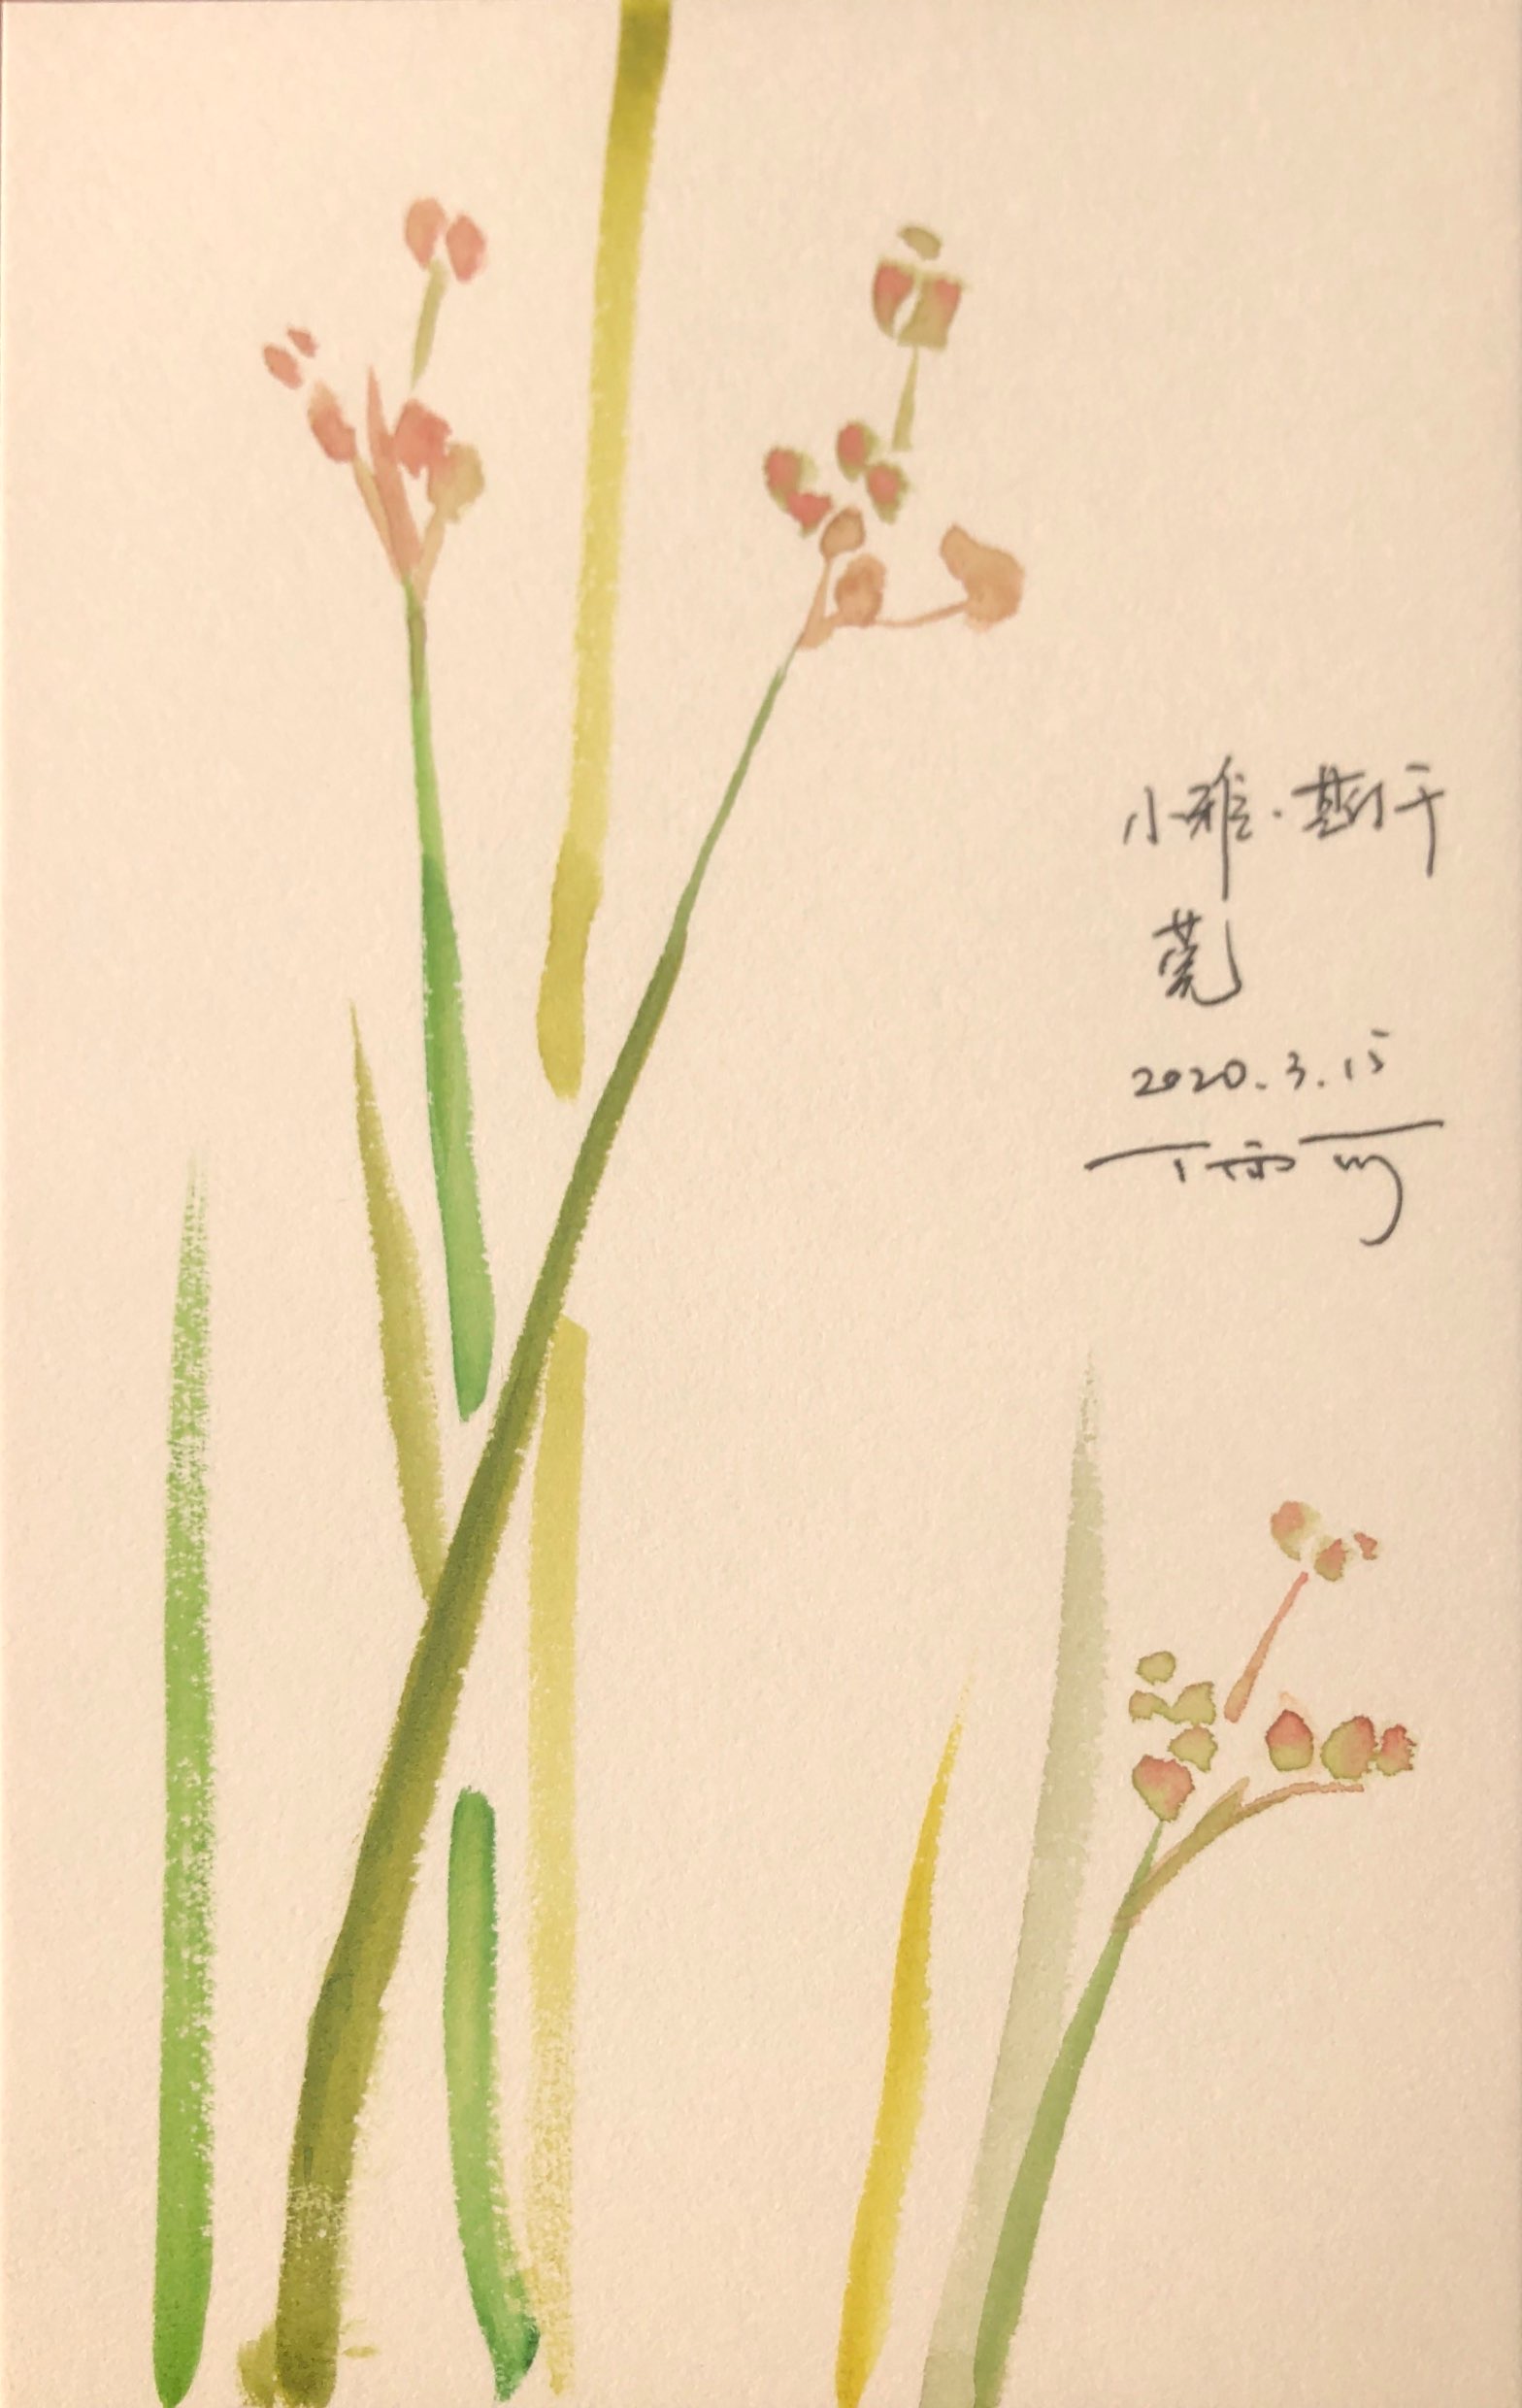 小雅·斯干
莞
2020.3.15
丁雨可